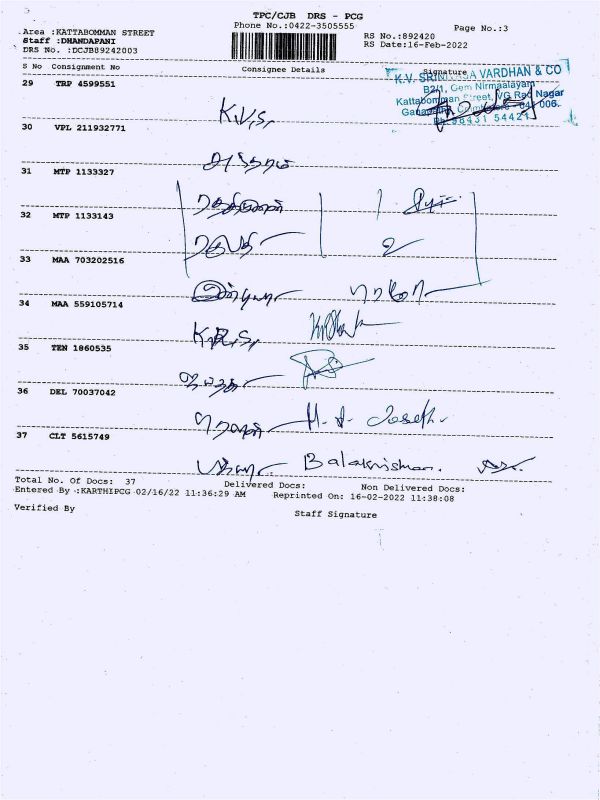 TPC/CJB DRS - PCG
Phone No.:0422-3505555
Page No.:3
Area :KATTABOMMAN STREET
Staff :DHANDAPANI
DRS No. :DCJB89242003
RS No.:892420
RS Date:16-Feb-2022
S No Consignment No Consignee Details Signature
K.V. SRINIVASA VARDHAN & CO
B2/1, Gem Nirmaalayam
Kattabomman Street, VG Rao Nagar
Ganapathy, Coimbatore - 641 006.
Ph: 96431 54421
29 TRP 4599551
K.V,S,
30 VPL 211932771
31 MTP 1133327
32 MTP 1133143
ரகுபதி
33 MAA 703202516
34 MAA 559105714
K.R,S,
35 TEN 1860535
36 DEL 70037042
Joseph.
37 CLT 5615749
Balakrishnan.
Total No. Of Docs: 37 Delivered Docs: Non Delivered Docs:
Entered By :KARTHIPCG 02/16/22 11:36:29 AM Reprinted On: 16-02-2022 11:38:08
Verified By
Staff Signature